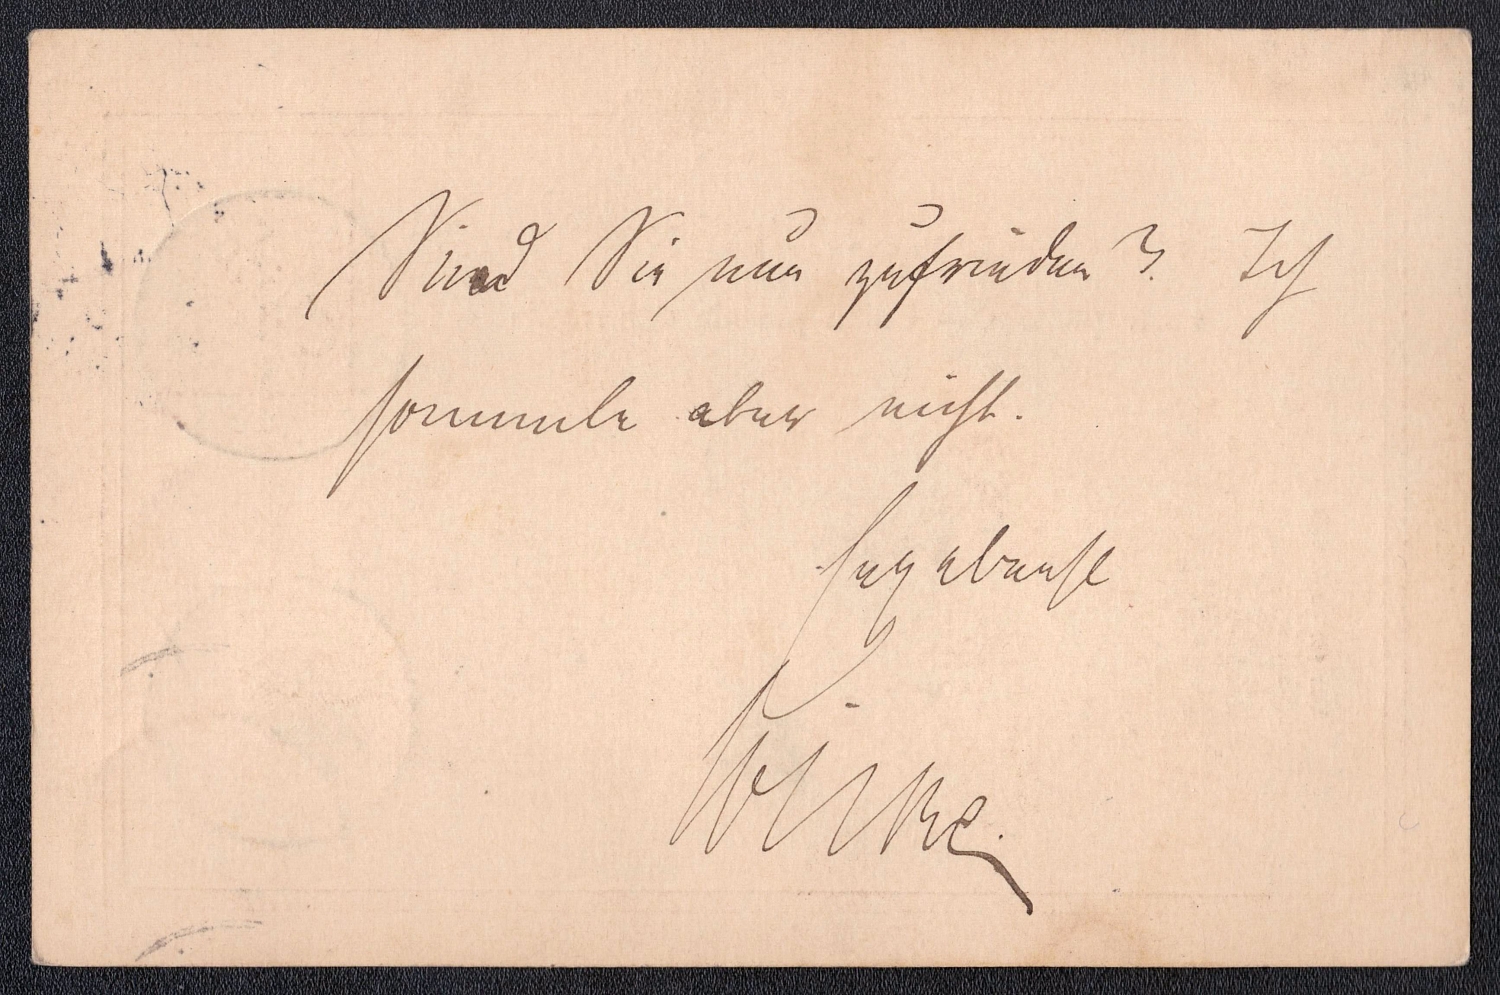 Sind Sie nun zufrieden? Ich
sammle aber nicht.
Ergebenst
Wilke.